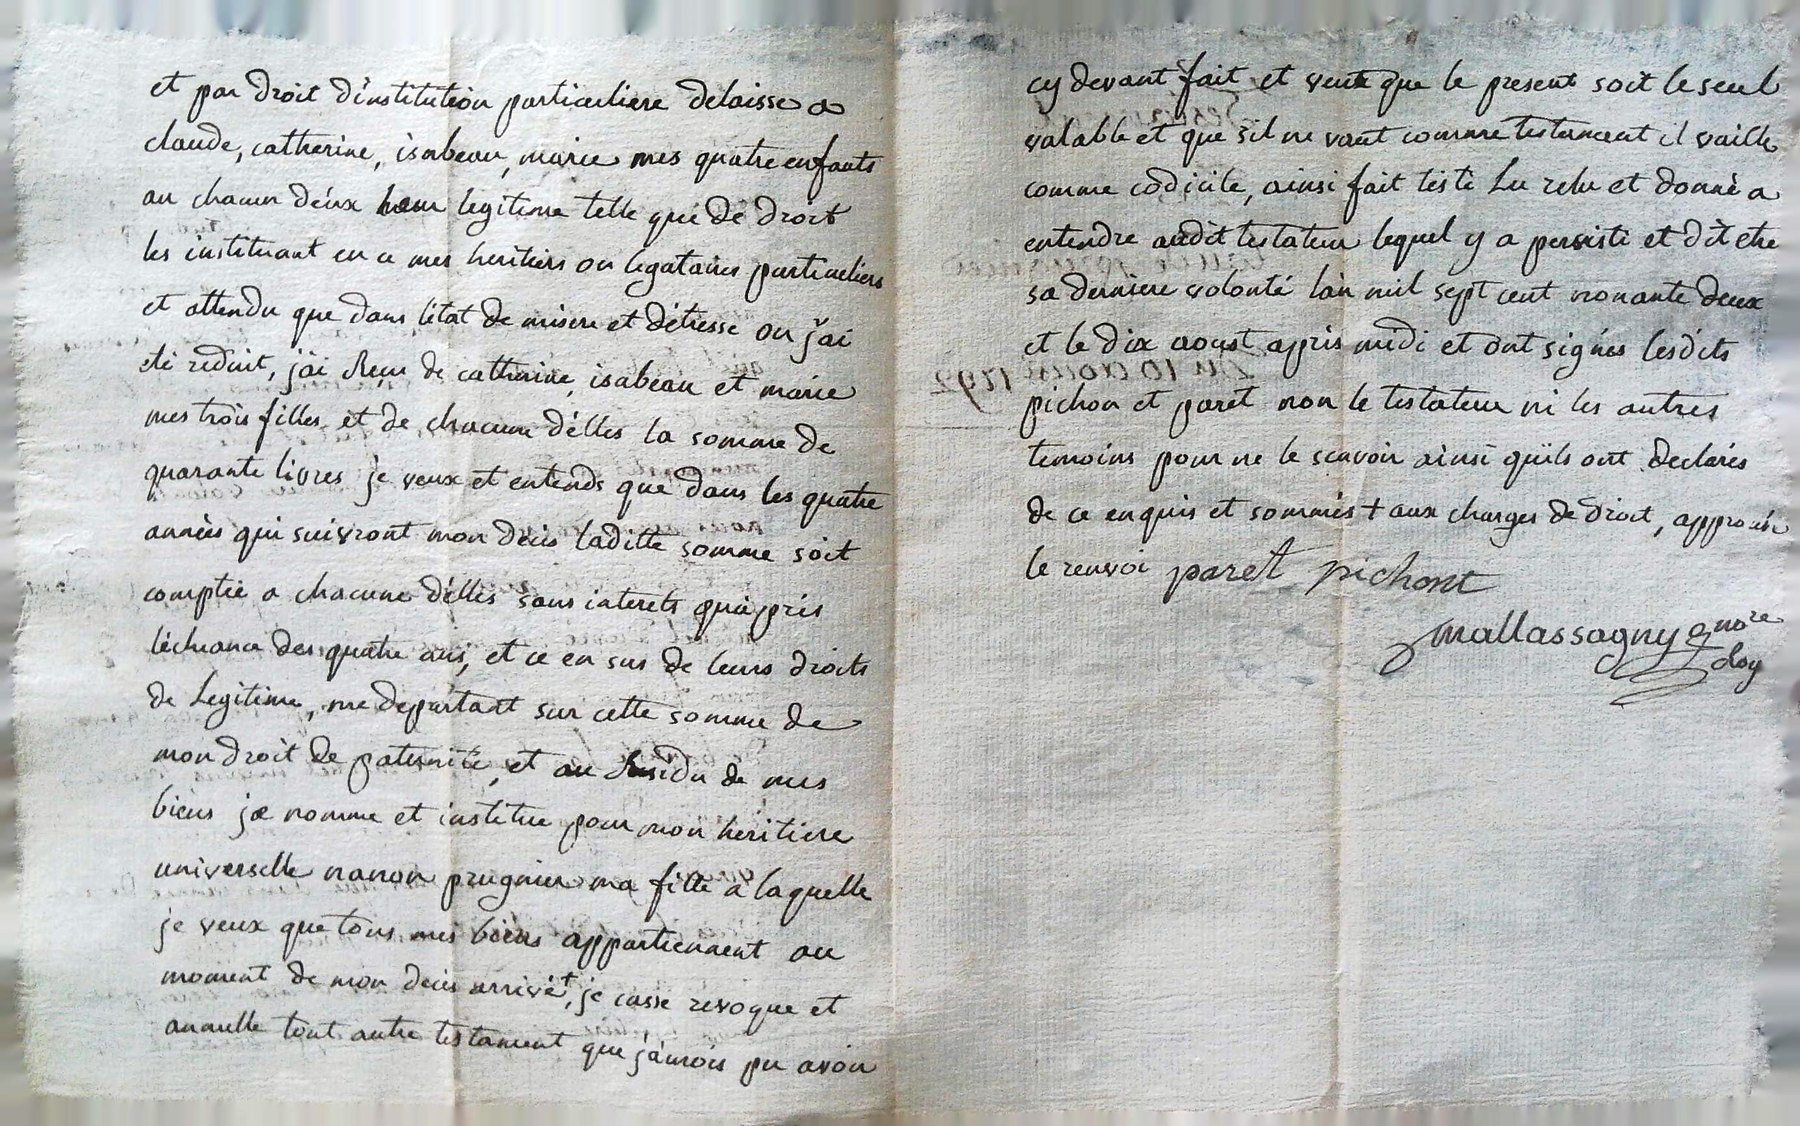 et par droit d'institution particuliere delaisse a
claude, catherine, isabeau, marie mes quatre enfants
au chacun d'eux leur legitime telle que de droit
les instituant en ce mes heritiers ou legataires particuliers
et attendu que dans l'etat de misere et détresse ou j'ai
eté reduit, j'ai Reçu de catherine, isabeau et marie
mes trois filles et de chacune d'elles la somme de
quarante livres je veux et entends que dans les quatre
années qui suivront mon decés laditte somme soit
comptée a chacune d'elles sans interets qu'aprés
l'echeance des quatre ans, et ce en sus de leurs droits
de Legitime, me departant sur cette somme de
mon droit de paternité, et au Residu de mes
biens je nomme et institue pour mon heritiere
universelle nanon prugnier ma fille a laquelle
je veux que tous mes biens appartiennent au
moment de mon decés arrivé +, je casse revoque et
annulle tout autre testament que j'aurois pu avoir
cy devant fait et veux que le present soit le seul
valable et que s'il ne vaut comme testament il vaille
comme codicile, ainsi fait testé Lu relu et donné a
entendre audit testateur lequel y a persisté et dit etre
sa derniere volonté l'an mil sept cent nonante deux
et le dix aoust aprés midi et ont signés lesdits
pichon et paret non le testateur ni les autres
temoins pour ne le scavoir ainsi qu'ils ont declarés
de ce enquis et sommés + aux charges de droit, approuvé
le renvoi paret pichont
mallassagny nore